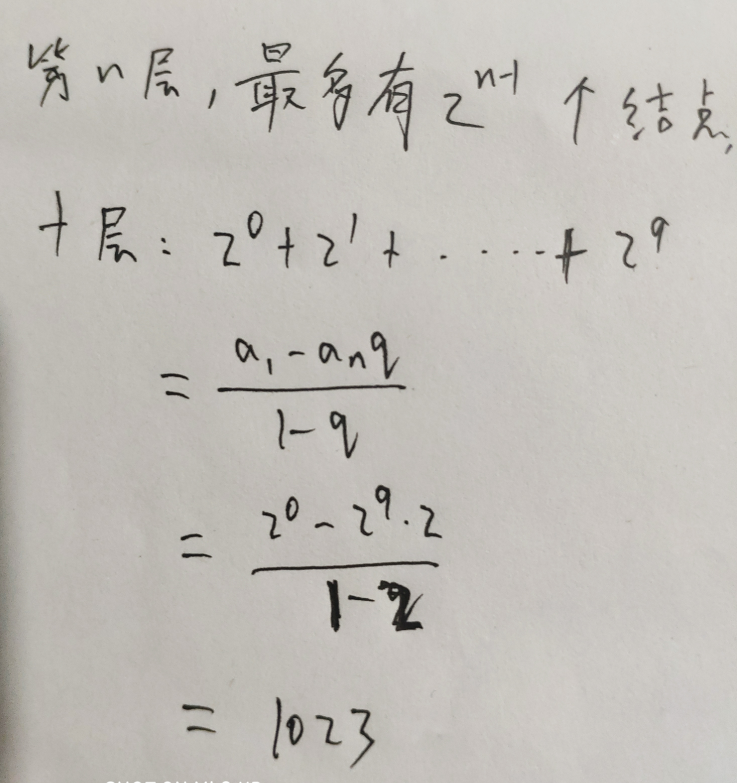 第n层,最多有2^{n-1}个结点,
十层:2^0+2^1+·····+2^9
=\frac{a_1-a_nq}{1-q}
=\frac{2^0-2^9·2}{1-2}
=1023